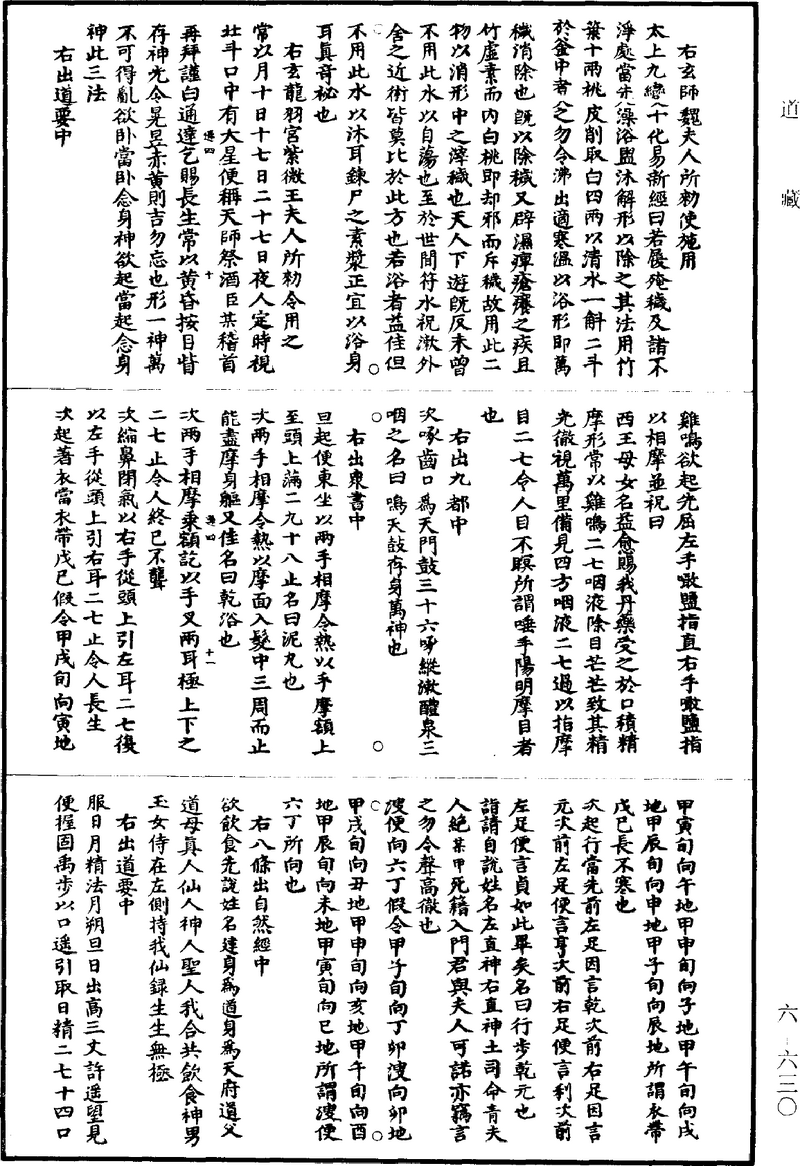 道藏
六·六三〇
右玄師魏夫人所勑使施用
太上九變十化易新經曰若履殗穢及諸不
淨處當先澡浴盥沐解形以除之其法用竹
葉十兩桃皮削取白四兩以清水一斛二斗
於釜中煑之勿令沸出適寒溫以浴形即萬
穢消除也旣以除穢又辟濕痺瘡癢之疾且
竹虛素而內白桃即却邪而斥穢故用此二
物以消形中之滓穢也天人下遊旣反未曾
不用此水以自蕩也至於世間符水祝漱外
舍之近術皆莫比於此方也若浴者益佳但
不用此水以沐耳鍊尸之素漿正宜以浴身
耳真奇祕也
右玄龍羽宮紫微王夫人所勑令用之
常以月十日十七日二十七日夜人定時視
北斗口中有大星便稱天師祭酒臣某稽首
再拜謹白通達乞賜長生常以黃昏按目眥
存神光令晃昱赤黃則吉勿忘也形一神萬
不可得亂欲卧當卧念身神欲起當起念身
神此三法
右出道要中
雞鳴欲起先屈左手噉鹽指直右手噉鹽指
以相摩並祝曰
西王母女名益愈賜我丹藥受之於口積精
摩形常以雞鳴二七咽液除目茫茫致其精
光徹視萬里備見四方咽液二七過以指摩
目二七令人目不瞑所謂唾手陽明摩目者
也
右出九都中
次啄齒口為天門鼓三十六啄縱漱醴泉三
咽之名曰鳴天鼓存身萬神也
右出衆書中
旦起便東坐以兩手相摩令熱以手摩額上
至頭上滿二九十八止名曰泥丸也
次兩手相摩令熱以摩面入髮中三周而止
能盡摩身軀又佳名曰乾浴也
次兩手相摩乘額訖以手叉兩耳極上下之
二七止令人終已不聾
次縮鼻閉氣以右手從頭上引左耳二七後
以左手從頭上引右耳二七止令人長生
次起著衣當衣帶戊已假令甲戌旬向寅地
甲寅旬向午地甲申旬向子地甲午旬向戌
地甲辰旬向申地甲子旬向辰地所謂衣帶
戊已長不寒也
次起行當先前左足因言乾次前右足因言
元次前左足便言亨次前右足便言利次前
左足便言貞如此畢矣名曰行步乾元也
詣請自說姓名左直神右直神土司命青夫
人絶某甲死籍入門君與夫人可諾亦竊言
之勿令聲高徹也
溲便向六丁假令甲子旬向丁卯溲向卯地
甲戌旬向丑地甲申旬向亥地甲午旬向酉
地甲辰旬向未地甲寅旬向巳地所謂溲便
六丁所向也
右八條出自然經中
欲飲食先說姓名建身為道身為天府道父
道母真人仙人神人聖人我合共飲食神男
玉女侍在左側持我仙録生生無極
右出道要中
服日月精法月朔旦日出高三丈許遥望見
便握固禹步以口遥引取日精二七十四口